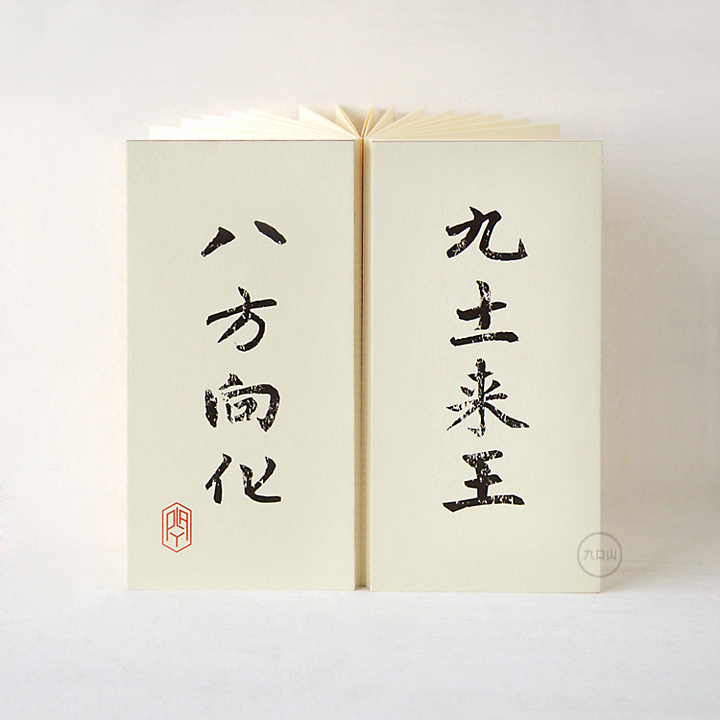 九土来王
八方向化
PLAY
九口山